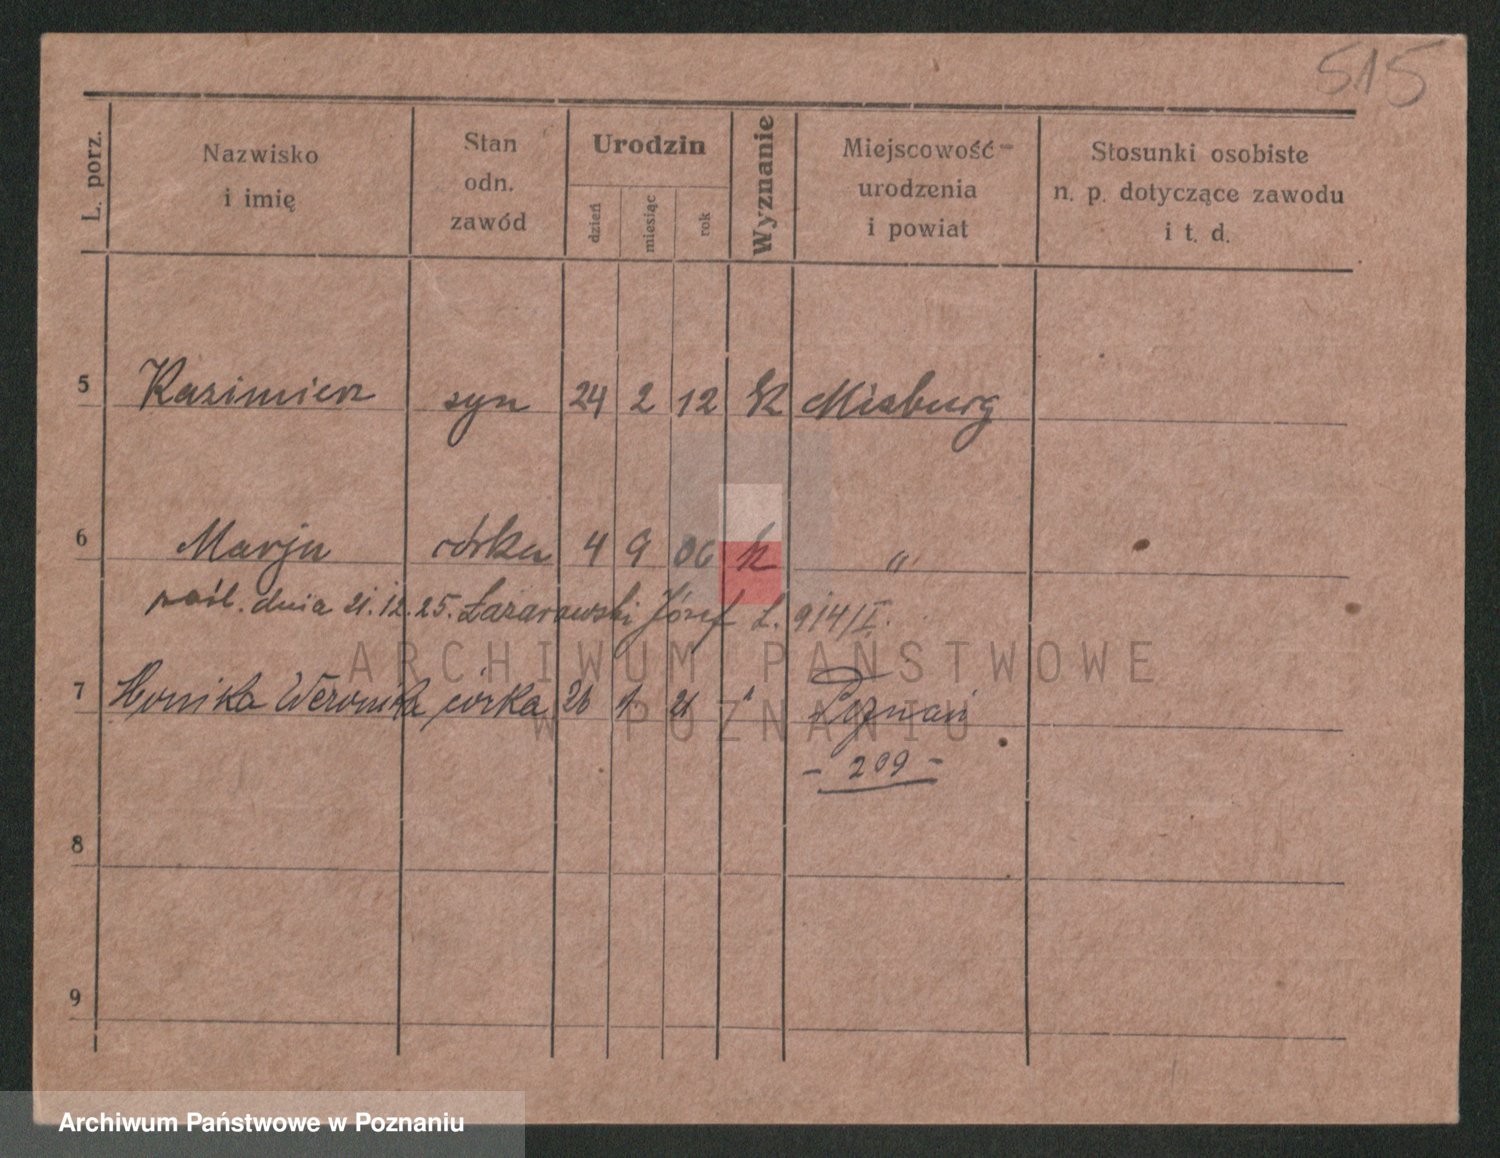 515
L. porz.
Nazwisko
i imię
Stan
odn.
zawód
Urodzin
dzień
miesiąc
rok
Wyznanie
Miejscowość
urodzenia
i powiat
Stosunki osobiste
n. p. dotyczące zawodu
i t. d.
5 Kazimierz syn 24 2 12 K Misburg
6 Marja córka 4 9 06 k "
zaśl. dnia 21.12.25. Łazarowski Józef L. 9/4/I.
7 Monika Weronika córka 26 1 21 " Poznań
- 209 -
8
9
ARCHIWUM PAŃSTWOWE
W POZNANIU
Archiwum Państwowe w Poznaniu